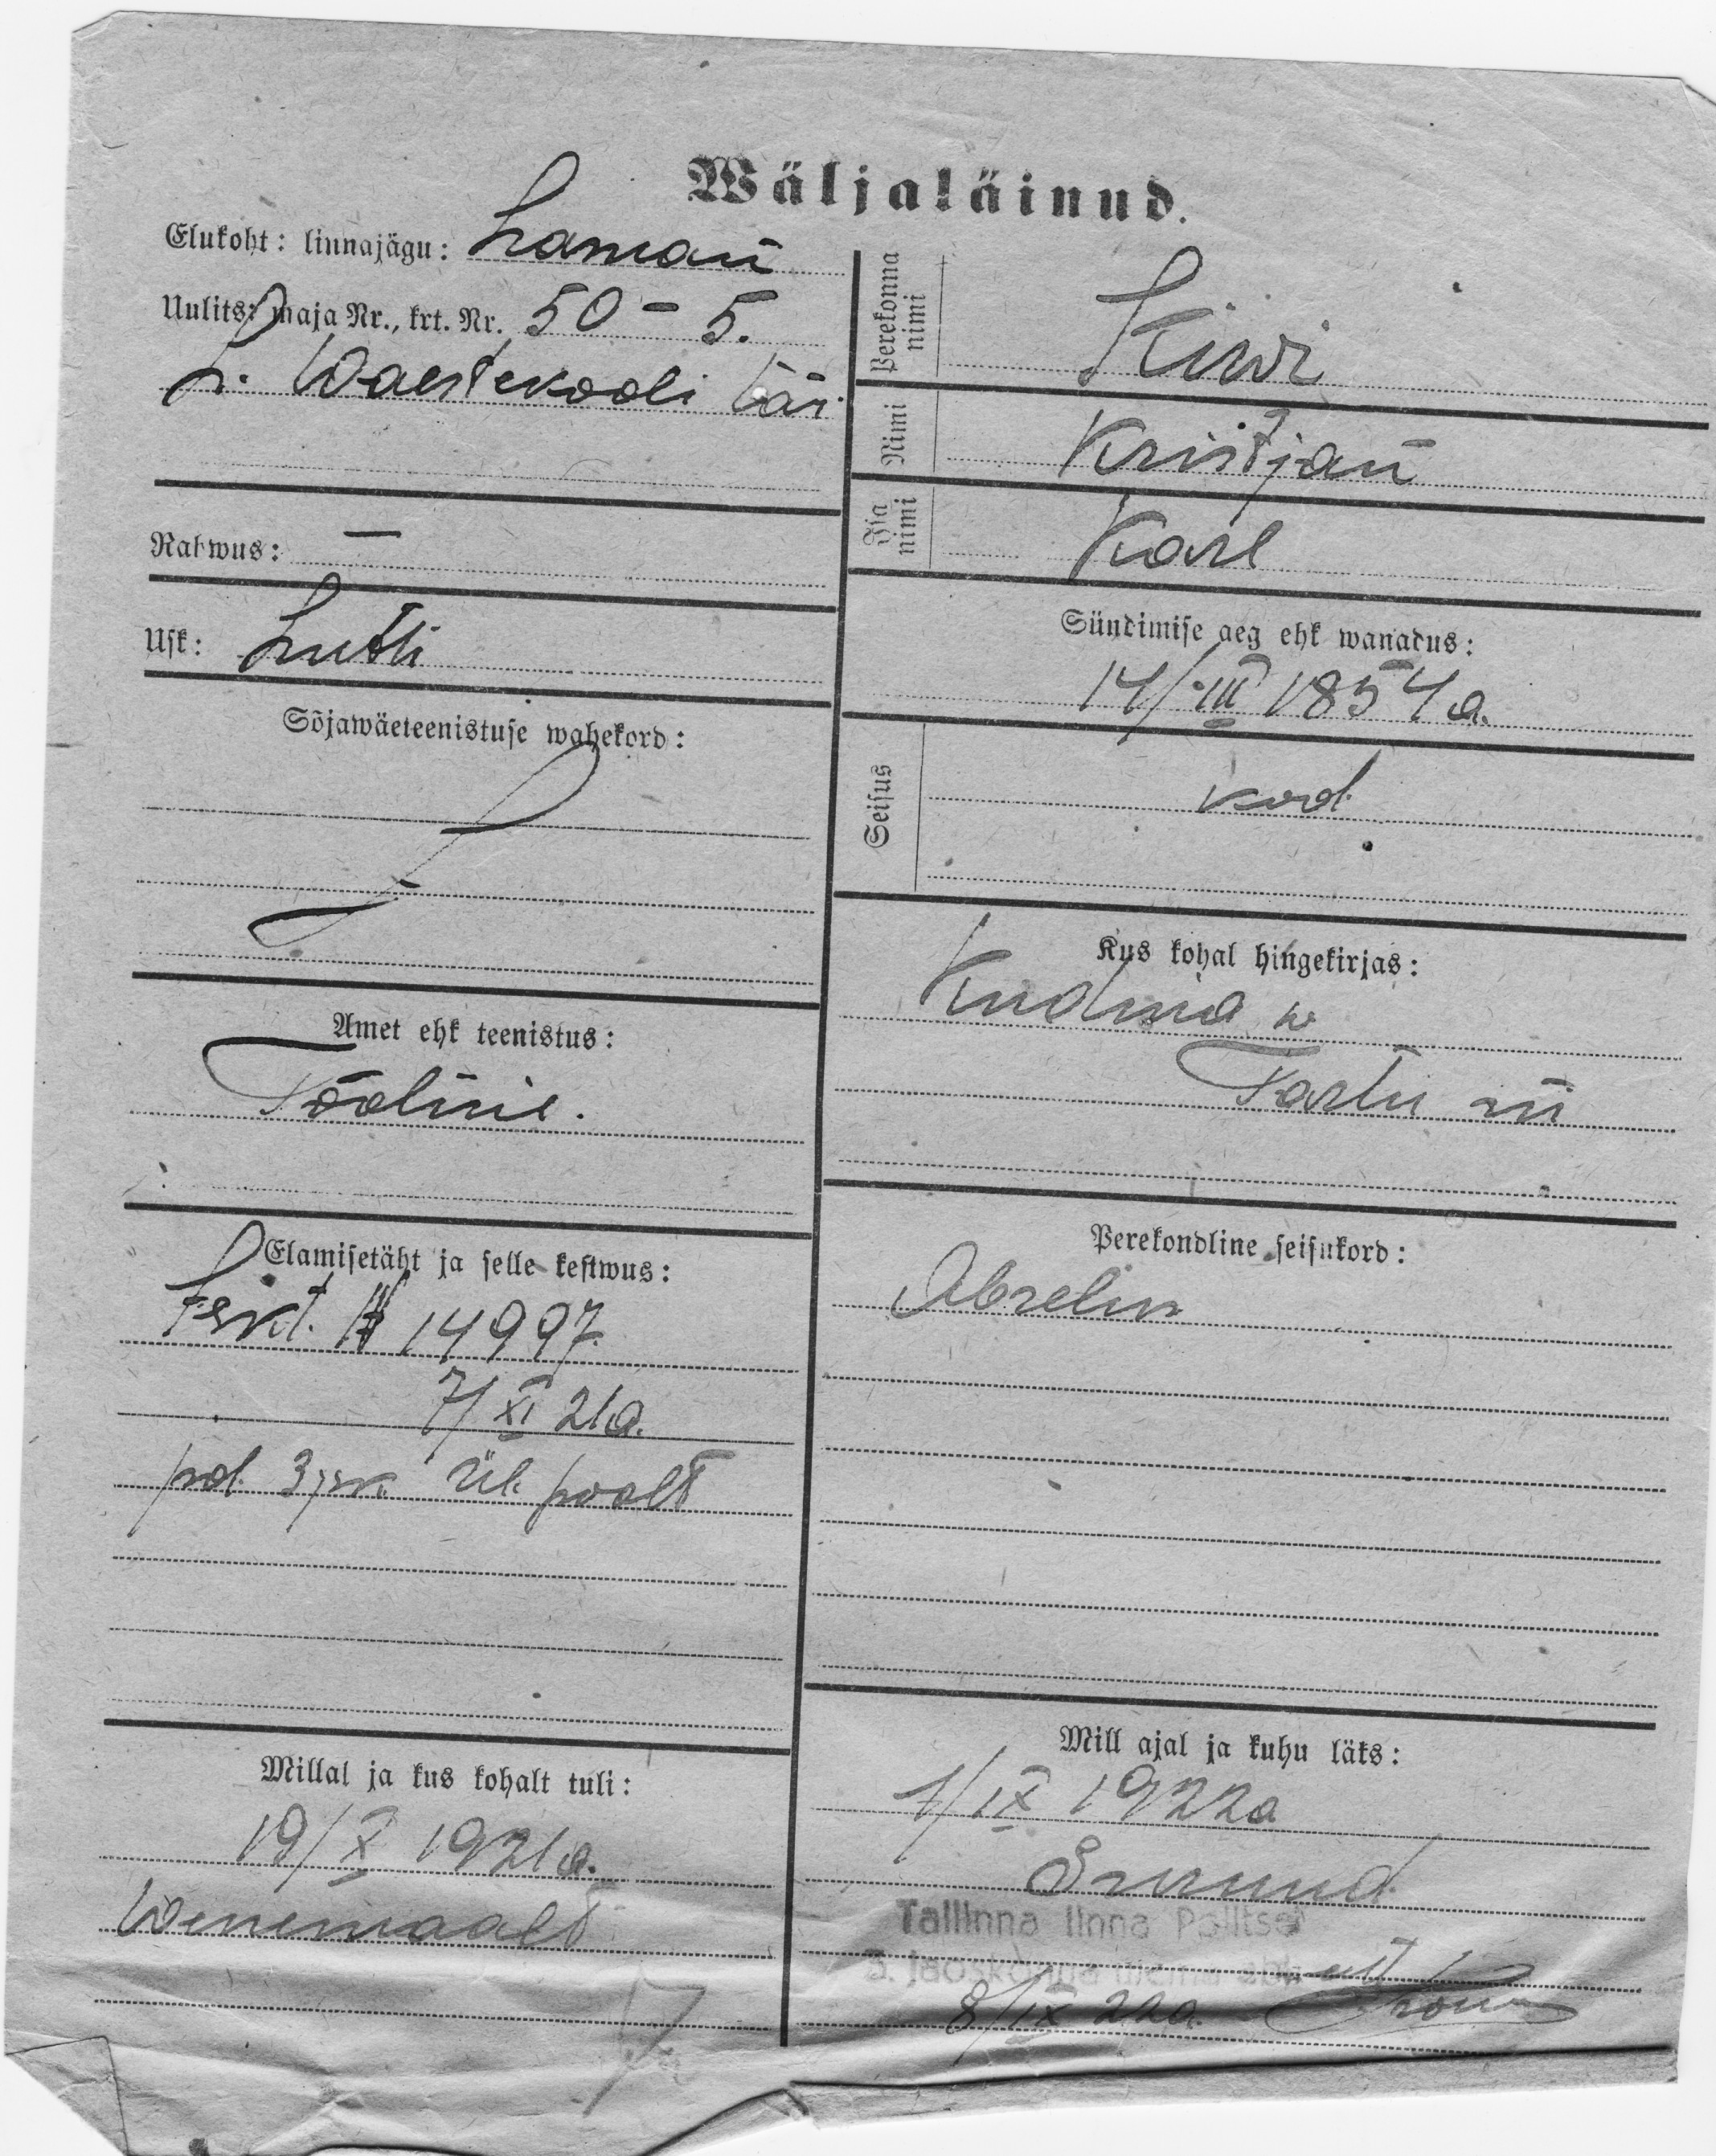 Wäljaläinud.
Elukoht: linnajägu:
Uulits: maja Nr., krt. Nr. 50 – 5.
Waestekooli
Rahwus: —
Usk: Lutti
Sõjawäeteenistuse wahekord:
Amet ehk teenistus:
Tööline.
Elamisetäht ja selle kestwus:
14997.
7/XI 21a.
pol. 3 jsk. ül. poolt
Millal ja kus kohalt tuli:
19/X 1921a.
Wenemaalt
Perekonna nimi
Kiwi
Nimi
Kristjan
Isa nimi
Karl
Sündimise aeg ehk wanadus:
14/III 1854a.
Seisus
kod.
Kus kohal hingekirjas:
Kudina w
Tartu
Perekondline seisukord:
Abielus
Mill ajal ja kuhu läks:
1/IX 1922a
Surnud.
Tallinna linna Politsei
3. jaoskonna
8/IX 22a.